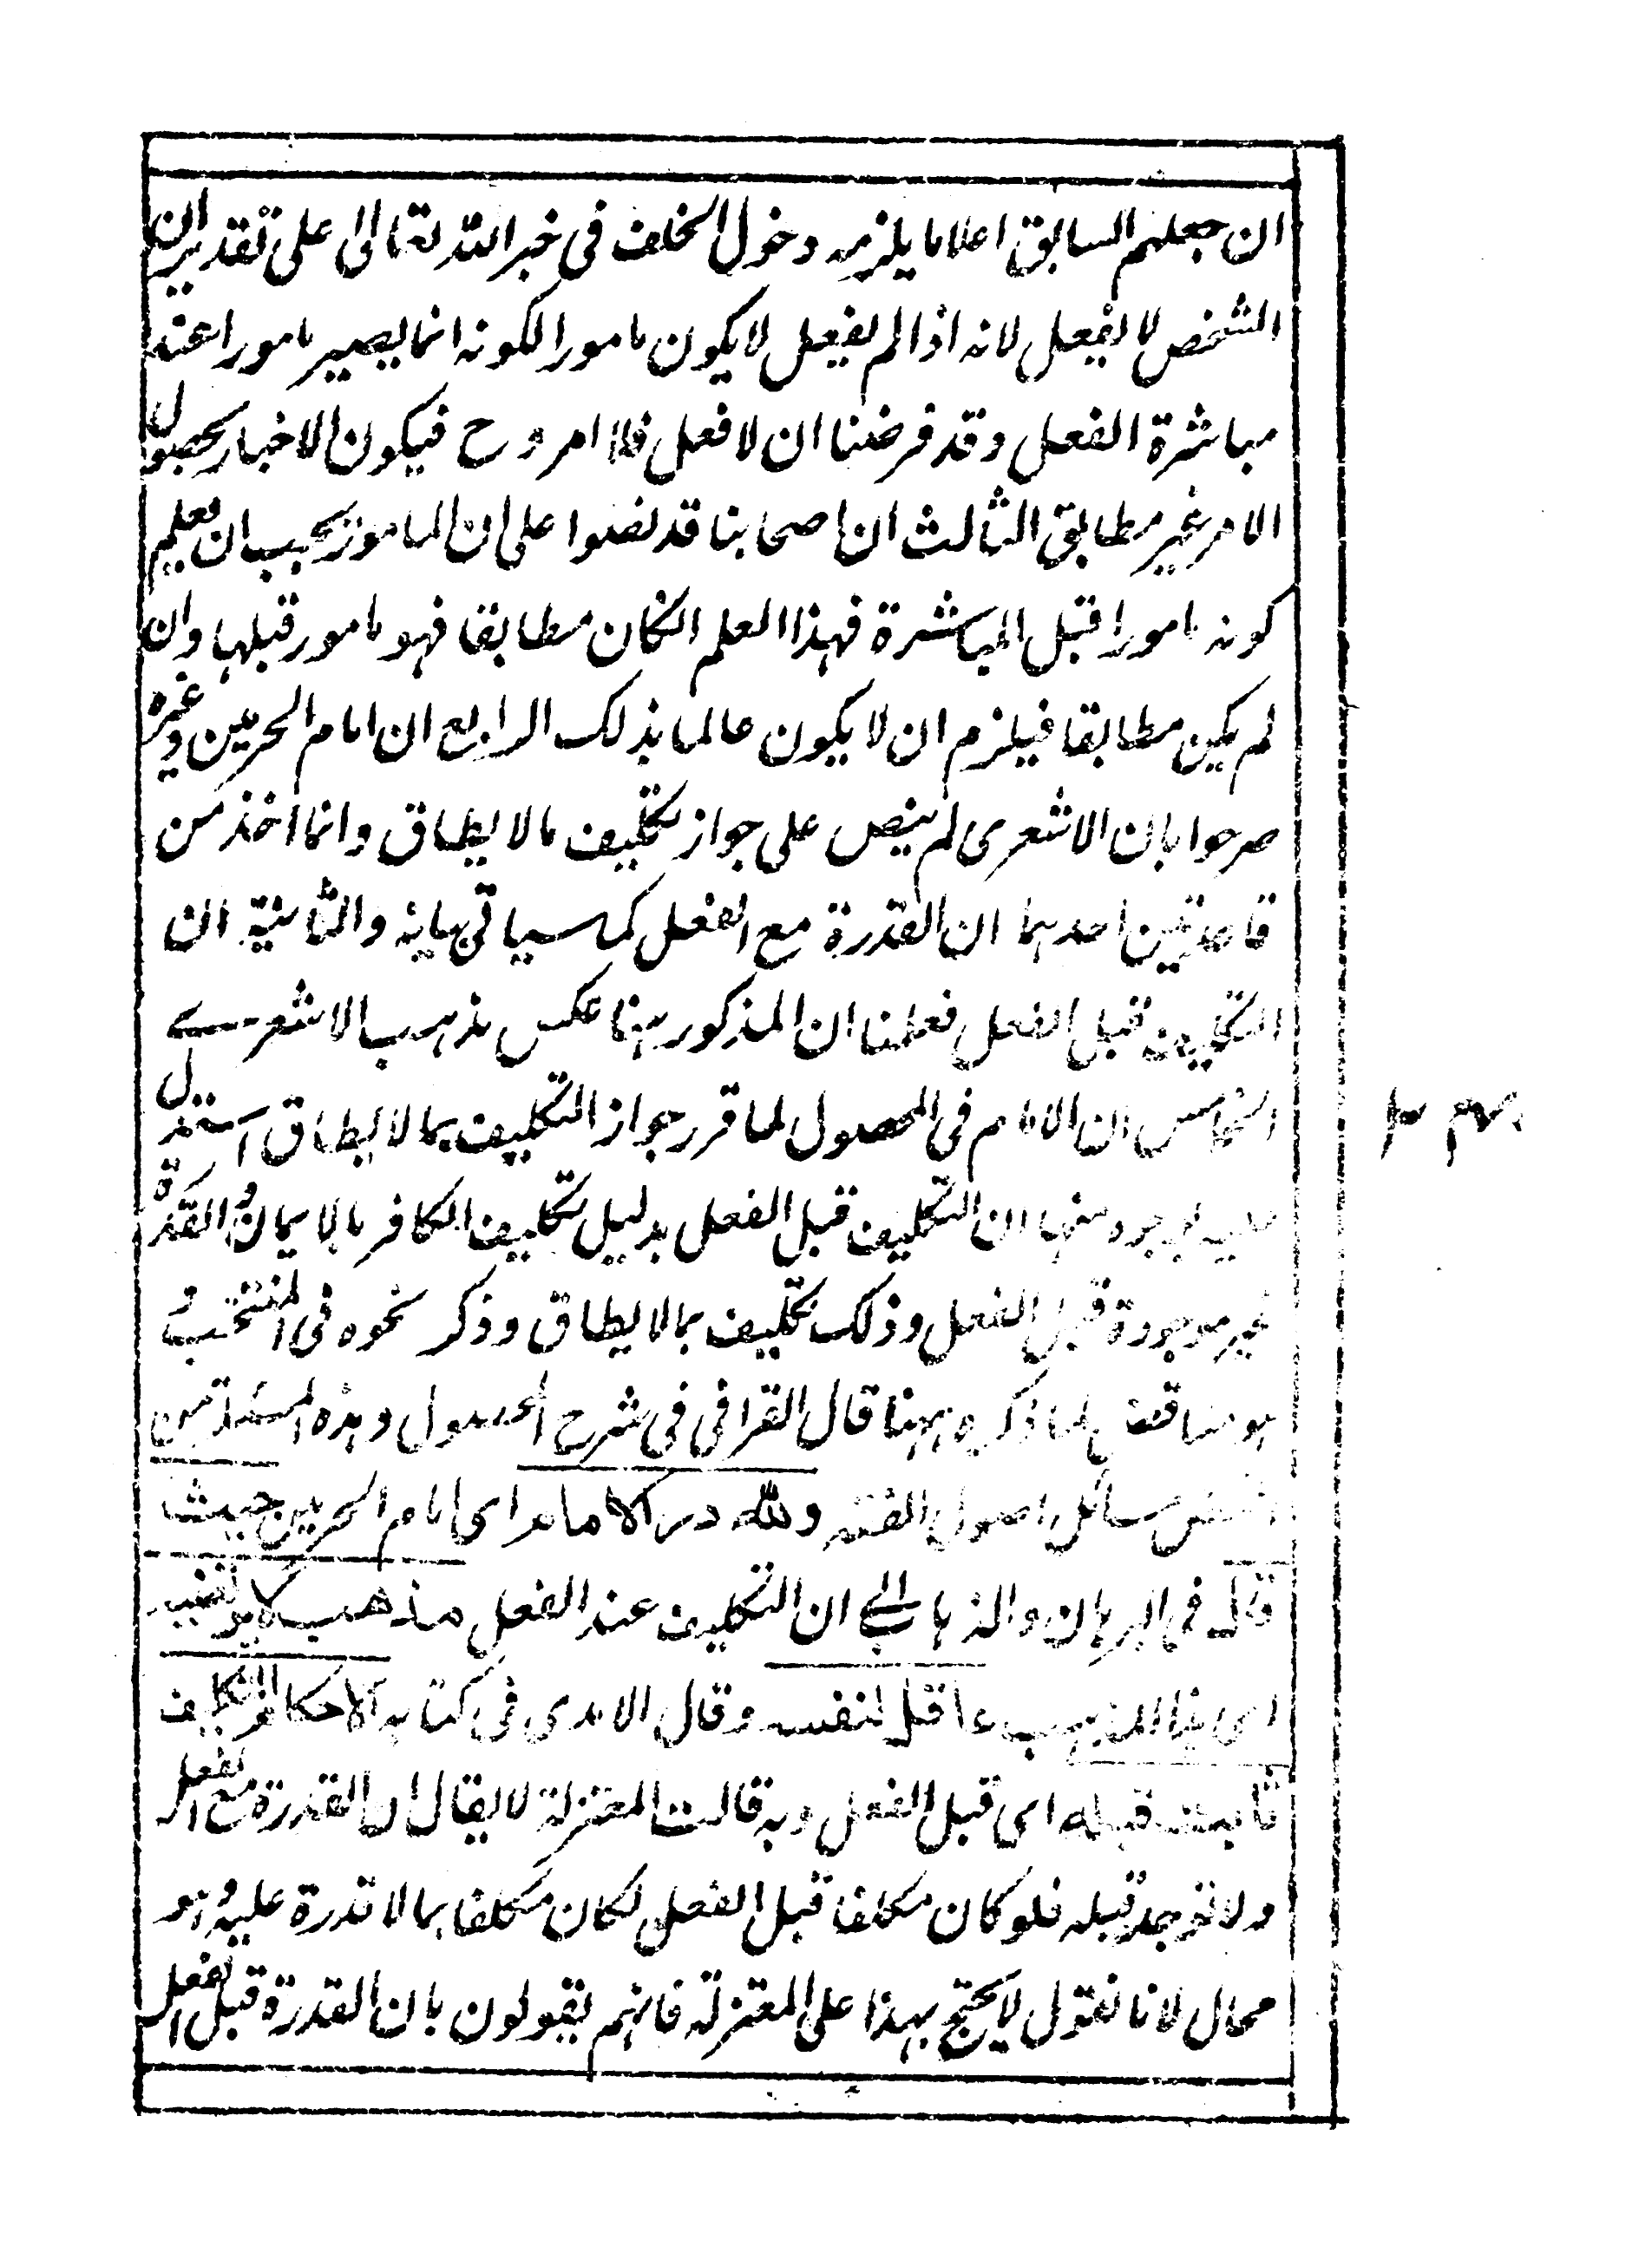 ان جعلهم السابق اعلاما يلزمه دخول الخلف فى خبر الله تعالى على تقدير ان
الشخص لا يفعل لانه اذا لم يفعل لا يكون مامورا لكونه انما يصير مامورا عند
مباشرة الفعل وقد فرضنا ان لا فعل فلا امر وح فيكون الاخبار بحصول
الامر غير مطابق الثالث ان اصحابنا قد نصوا على ان المامور يجب ان يعلم
كونه مامورا قبل المباشرة فهذا العلم انكان مطابقا فهو مامور قبلها وان
لم يكن مطابقا فيلزم ان لا يكون عالما بذلك الرابع ان امام الحرمين وغيره
صرحوا بان الاشعرى لم ينص على جواز تكليف مالا يطاق وانما اخذ من
قاعدتين احدهما ان القدرة مع الفعل كما سياتى بيانه والثانية ان
التكليف قبل الفعل فعلمنا ان المذكور ههنا عكس مذهب الاشعرى
الخامس ان الامام فى المحصول لما قرر جواز التكليف بما لا يطاق استدل
عليه بوجوه منها ان التكليف قبل الفعل بدليل تكليف الكافر بالايمان والقدرة
غير موجودة قبل الفعل وذلك تكليف بما لا يطاق وذكر نحوه فى المنتخب و
هو مناقض لما ذكره ههنا قال القرافى فى شرح المحصول وهذه المسئلة من
اغمض مسائل اصول الفقه ولله در الامام اى امام الحرمين حيث
قال فى البرهان والذهاب الى ان التكليف عند الفعل مذهب لا يرتضيه
اى هذا المذهب عاقل لنفسه وقال الامدى فى كتابه الاحكام التكليف
ثابت قبله اى قبل الفعل وبه قالت المعتزلة لا يقال ان القدرة مع الفعل
ولا توجد قبله فلو كان مكلفا قبل الفعل لكان مكلفا بما لا قدرة عليه وهو
محال لانا نقول لا يحتج بهذا على المعتزلة فانهم يقولون بان القدرة قبل الفعل